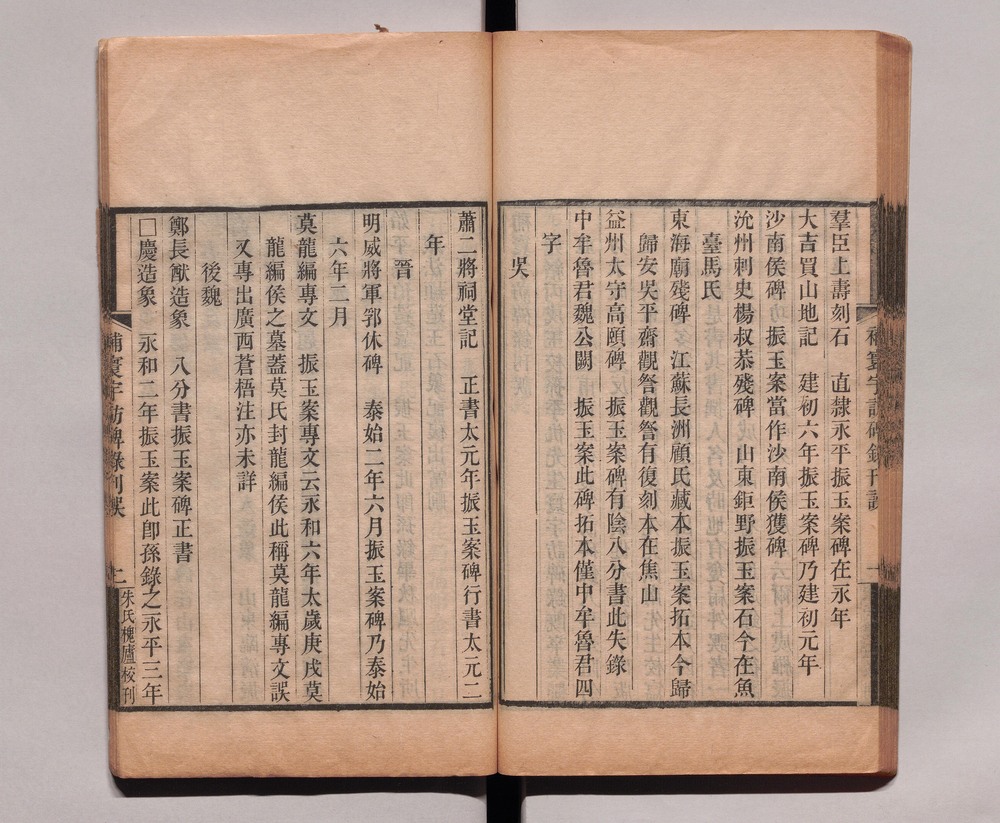 羣臣上壽刻石　直隸永平振玉案碑在永年
大吉買山地記　建初六年振玉案碑乃建初元年
沙南侯碑　振玉案當作沙南侯獲碑
沇州刺史楊叔恭殘碑　山東鉅野振玉案石今在魚
臺馬氏
東海廟殘碑　江蘇長洲顧氏藏本振玉案拓本今歸
歸安吳平齋觀詧觀詧有復刻本在焦山
益州太守高頤碑　振玉案碑有陰八分書此失錄
中牟魯君魏公闕　振玉案此碑拓本僅中牟魯君四
字
吳
蕭二將祠堂記　正書太元年振玉案碑行書太元二
年
晉
明威將軍郛休碑　泰始二年六月振玉案碑乃泰始
六年二月
莫龍編專文　振玉案專文云永和六年太歲庚戌莫
龍編侯之墓蓋莫氏封龍編侯此稱莫龍編專文誤
又專出廣西蒼梧注亦未詳
後魏
鄭長猷造象　八分書振玉案碑正書
□慶造象　永和二年振玉案此卽孫錄之永平三年
補寰宇訪碑錄刊誤
二
朱氏槐廬校刊